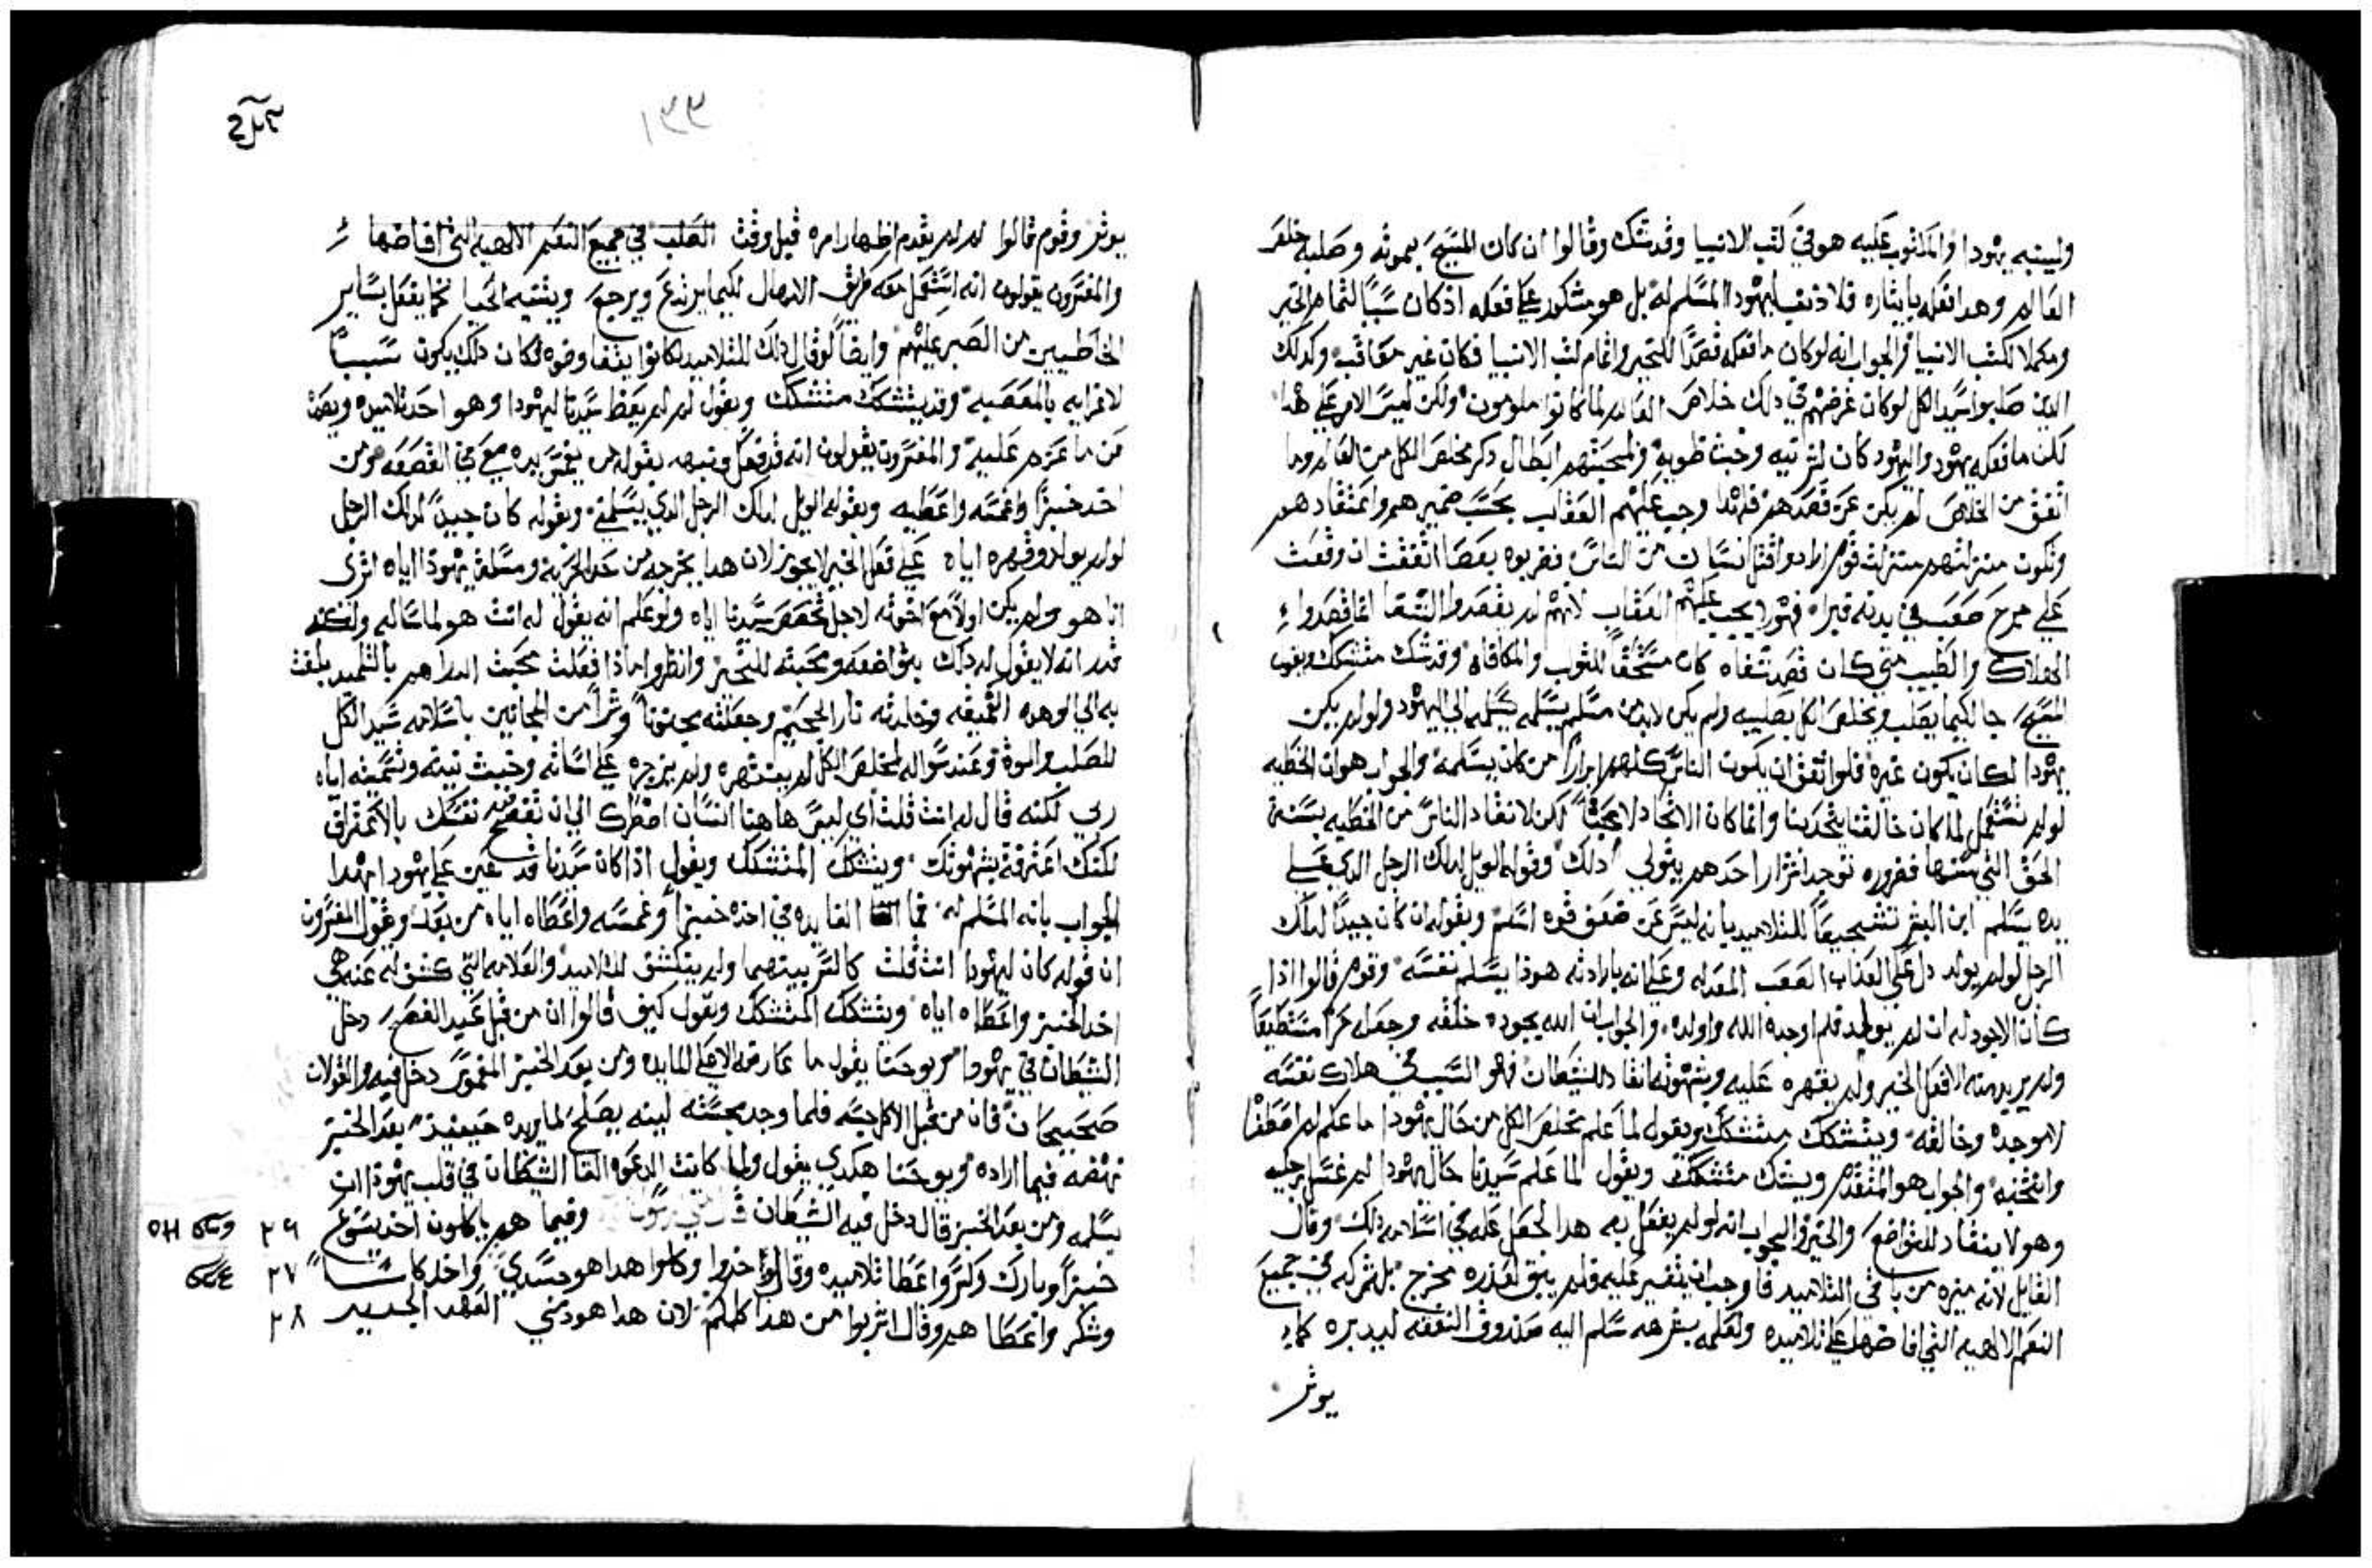 ولينبه يهودا والمكتوب عليه هو في كتب الانبيا وقد تشكك وقالوا ان كان المسيح بموته وصلبه خلص
العالم وهدا فعله بايثاره فلا ذنب ليهودا المسلم له بل هو مشكور علي فعله اذ كان سببا لتمام الخير
ومكملا لكتب الانبيا والجواب انه لو كان ما فعله قصدا للخير واتمام كتب الانبيا فكان غير معاقب وكدلك
الدين صلبوا سيد الكل لو كان غرضهم في دلك خلاص العالم لما كانوا ملومون ولكن ليس الامر علي هدا
لكن ما فعله يهودا واليهود كان لشر نيه وخبث طويه ومحبتهم ابطال دكر مخلص الكل من العالم وما
اتفق من الخلاص لم يكن عن قصدهم فلهدا وجب عليهم العقاب بحسب ضميرهم واعتقادهم
وتكون منزلتهم منزلت قوم ارادوا قتل انسان من الناس فضربوه بعصا اتفقت ان وقعت
علي جرح صعب في بدنه فبراه فهولا يجب عليهم العقاب لانهم لم يقصدوا الشفا انما قصدوا
الهلاك والطبيب متي كان قصد شفاه كان مستحقا للثواب والمكافاه وقد تشكك متشكك ويقول
المسيح جا لكيما يصلب ويخلص الكل بصلبه ولم يكن لابد من مسلم يسلمه الي اليهود ولو لم يكن
يهودا لكان يكون غيره فلو اتفق ان يكون الناس كلهم ابرارا من كان يسلمه والجواب هو ان الخطيه
لو لم تشتمل لما كان خالقنا يتحد بنا وانما كان الاتحاد لا عبثا لكن لانقاد الناس من الخطيه بسنة
الحق التي سنها فضروره توجد اشرار احدهم يتولي دلك وقوله الويل لدلك الرجل الدي علي
يده يسلم ابن البشر تشجيعا للتلاميد بانه ليس عن ضعف قوه اسلم وبقوله ان كان جيدا لدلك
الرجل لو لم يولد دل علي العداب الصعب المعد له وعلي انه بارادته هوذا يسلم نفسه وقوم قالوا اذا
كان الاجود له ان لم يولد فلم اوجده الله واولده والجواب ان الله بجوده خلقه وجعله حرا مستطيعا
ولم يريد منه الا فعل الخير ولم يقهره عليه وبشهوته انقاد للشيطان فهو السبب في هلاك نفسه
لا موجده وخالقه ويتشكك متشكك ويقول لما علم مخلص الكل من حال يهودا ما علم لم اصطفا
وانتخبه والجواب هو المتقدم ويشك متشكك ويقول لما علم سيدنا حال يهودا لم غسل رجليه
وهو لا ينقاد للتواضع والخير والجواب انه لو لم يفعل به هدا لجعل عله في اسلامه دلك وقال
القايل لانه ميزه من باقي التلاميد فاوجب ان يتغير عليه فلم يبق لعذره مخرج بل شركه في جميع
النعم الالهيه التي افاضها علي تلاميده ولعلمه بشرهه سلم اليه صندوق النفقه ليدبره كما
يوثر
١٣٣
يوثر وقوم قالوا لم لم يقدم اظهار امره قبل وقت الصلب في جميع النعم الالهيه التي افاضها
والمفسرون يقولون انه استعمل معه طريق الامهال لكيما يرتدع ويرجع ويثنيه الحيا كما يفعل بساير
الخاطيين من الصبر عليهم وايضا لو قال دلك للتلاميد لكانوا يفاوضوه فكان دلك يكون سببا
لاغرايه بالمعصيه وقد يتشكك متشكك ويقول لم لم يعظ سيدنا ليهودا وهو احد تلاميده ويصده
عن ما عزم عليه والمفسرون يقولون انه قد فعل ونبهه بقوله من يغمس يده معي في القصعه ومن
اخد خبزا وغمسه واعطيه وبقوله الويل لدلك الرجل الدي يسلمني وبقوله كان جيدا لدلك الرجل
لو لم يولد وقهره اياه علي فعل الخير لا يجوز لان هدا يخرجه من حد الحريه ومسلة يهودا اياه اتري
انا هو ولم يكن اولا مع اخوته لاجل تخصص سيدنا اياه ولو علم انه يقول له انت هو لما ساله ولكنه
قدر انه لا يقول له دلك بتواضعه ومحبته للخير وانظروا ماذا فعلت محبت الدراهم بالتلميد بلغت
به الي الوهده العميقه وخلدته نار الجحيم وجعلته مجنونا وشرا من المجانين باسلامه سيد الكل
للصلب والموت وعند سواله لمخلص الكل لم ينتهره ولم يزجره علي اساته وخبيث نيته وتسميته اياه
ربي لكنه قال له انت قلت اي ليس هاهنا انسان اضطرك الي ان تفضح نفسك بالاعتراف
لكنك اعترفت بشهوتك ويتشكك المتشكك ويقول اذا كان سيدنا قد عين علي يهودا بهدا
الجواب بانه المسلم له فما الفايده في اخده خبزا وغمسه واعطاه اياه من بعد ويقول المفسرون
ان قوله كان ليهودا انت قلت كالسر بينهما ولم ينكشف للتلاميد والعلامه التي كشف له عنه هي
اخد الخبز واعطاه اياه ويتشكك المتشكك ويقول كيف قالوا ان من قبل عيد الفصح دخل
الشيطان في يهودا ويوحنا يقول ما عارضه الا علي المايده ومن بعد الخبز المغموس دخل فيه والقولان
صحيحان فان من قبل الاكل جسه فلما وجد مجسته لينه يصلح لما يريده حينيذ بعد الخبز
نهضه فيما اراده ويوحنا هكدي يقول ولما كانت الدعوه القا الشيطان في قلب يهودا ان
يسلمه ومن بعد الخبز قال دخل فيه الشيطان وفيما هم ياكلون اخد يسوع ٢٦
خبزا وبارك وكسر واعطا تلاميده وقال خدوا وكلوا هدا هو جسدي واخد كاسا ٢٧
وشكر واعطاهم وقال اشربوا من هدا كلكم لان هدا هو دمي العهد الجديد ٢٨